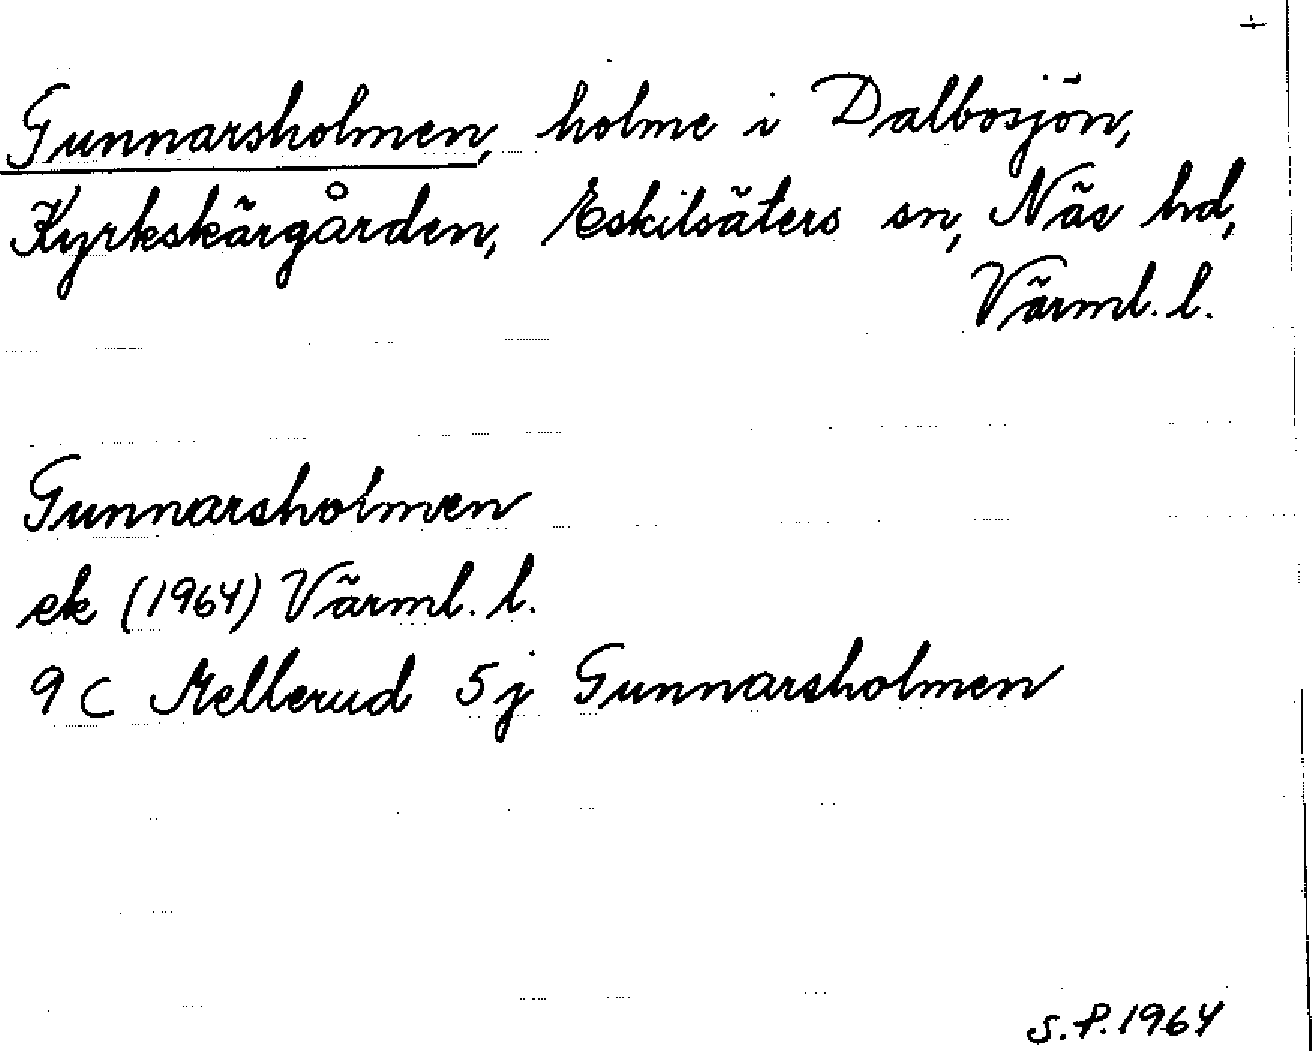 +
Gunnarsholmen, holme i Dalbosjön,
Kyrkskärgården, Eskilsäters sn, Näs hd,
Värml. l.
Gunnarsholmen
ek (1964) Värml. l.
9 C Mellerud 5 j Gunnarsholmen
S.P. 1964